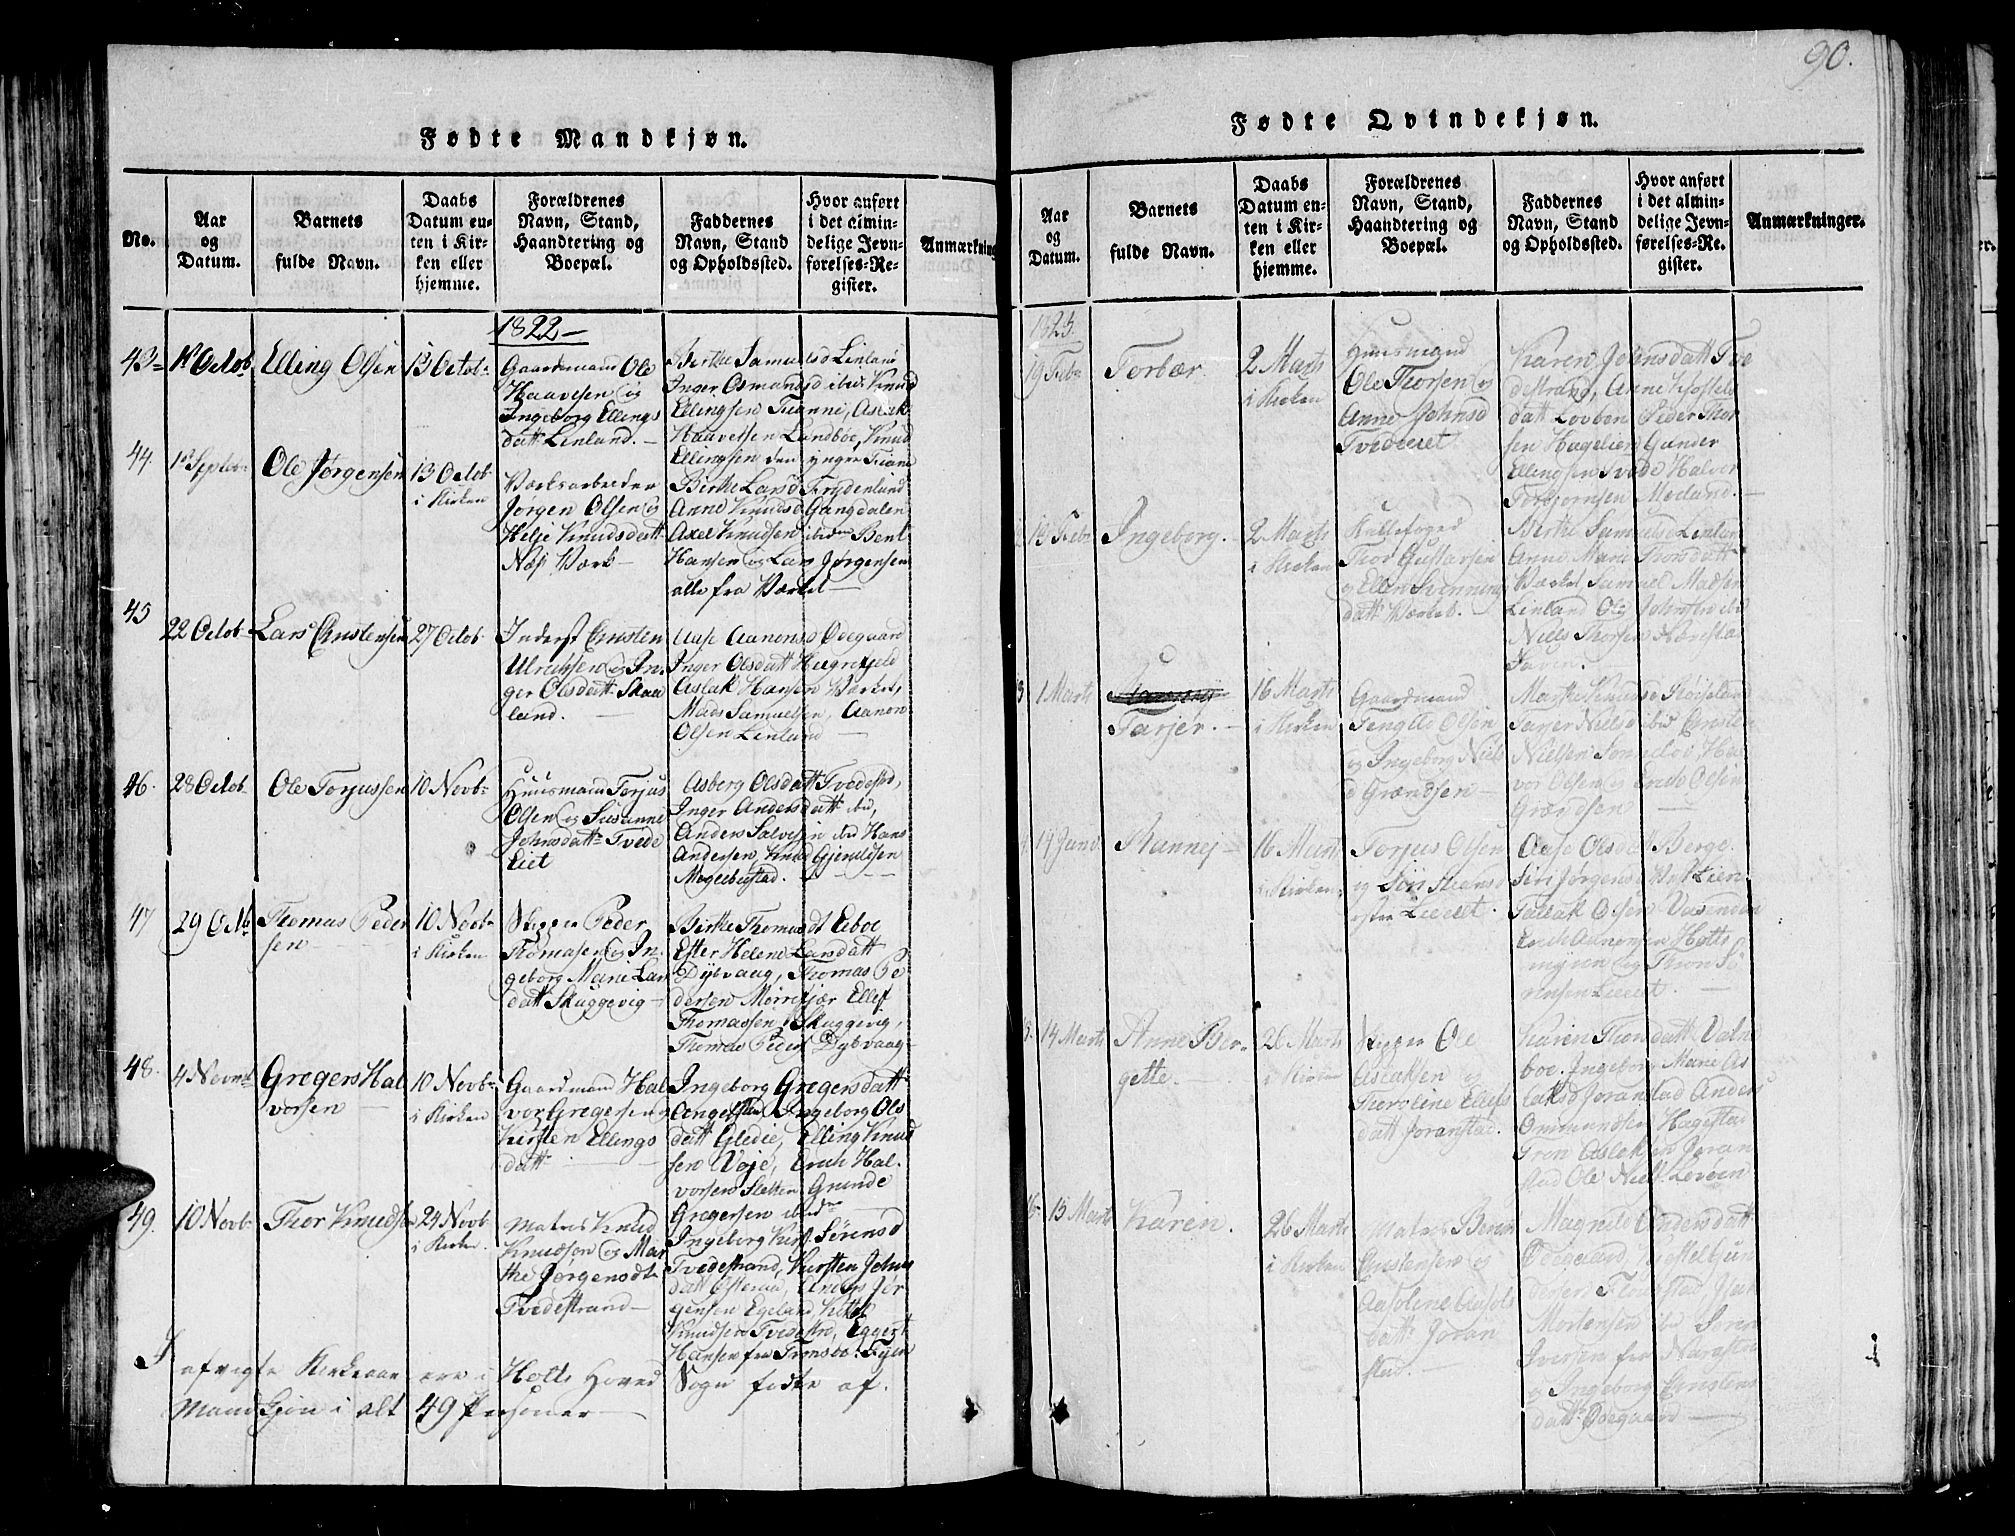 90.
Fødte Mandkjøn.
No.
Aar
og
Datum.
Barnets
fulde Navn.
Daabs
Datum en-
ten i Kir-
ken eller
hjemme.
Forældrenes
Navn, Stand,
Haandtering og
Boepæl.
Faddernes
Navn, Stand
og Opholdssted.
Hvor anført
i det almin-
delige Jevn-
førelses-Re-
gister.
Anmærkning
1822
43
1st Octob
Elling Olsen
13 Octob
Gaardmand Ole
Haavesen og
Ingeborg Ellings
datt Linland.
Birthe Samuelsd Linland
Inger Osmundsd ibid Knud
Ellingsen Fianne, Aslak
Haavesen Landbøe, Knud
Ellingsen den yngre Fiane
44.
1st Septbr
Ole Jørgensen
13 Octob
i Kirken
Værksarbeider
Jørgen Olsen og
Helje Knudsdatt
Næs Værk
Birthe Larsd Frydenlund
Anne Knudsd Gangdalen
Axel Knudsen ibidm Bent
Hansen og Lars Jørgensen
alle fra Værket
45
22 Octob
Lars Christensen
27 Octob
Inderst Christen
Ulrichsen og In-
ger Olsdatt Skaa
land.
Aase Aanonsd Ødegaard
Inger Olsdatt Hugrefjeld
Aslak Hansen Værket,
Mads Samuelsen, Aanon
Olsen Linland
46.
28 Octob
Ole Torjussen
10 Novbr
Huusmand Torjus
Olsen og Susanne
Johnsdatt Tvede
Eiet
Asberg Olsdatt Tvedestrd,
Inger Andersdatt ibid,
Anders Salvesen ibd Hans
Andersen, Knud Gjeruldsen
Mogelbustad.
47
29 Octb
Thomas Peder
sen
10 Novbr
i Kirken
Skipper Peder
Thomasen og In-
geborg Marie Lar
datt Skuggevig
Birthe Thomasdt Eiboe
Ester Helene Larsdatt
Dybvaag, Thomas Pe
dersen Morrefjær Ellef
Thomassen Skuggevig,
Thomas Peders Dybvaag
48.
4 Novmb
Gregers Hal
vorsen
10 Novbr
i Kirken
Gaardmand Hal
vor Gregersen og
Kirsten Ellings
datt
Ingeborg Gregersdatt
Angelstad Ingeborg Ols
datt Gledie, Elling Knud
sen Voje, Erich Hal-
vorsen Sletten, Grunde
Gregersen ibidm
49.
10 Novb
Thor Knudsen
24 Novb
i Kirken.
Matros Knud
Knudsøn og Mar
the Jørgensdt
Tvedestrand
Ingeborg Kirst Sørensd
Tvedestrand, Kirsten Johns
datt Østeraa, Anders Jør
gensen Egeland Kittel
Knudsen Tvedestrd, Eggert
Hansen fra Tromsøe: Fyen
I
afvigte Kirkeaar ere i Holts Hoved Sogn fødte af
Mand Kjøn i alt 49 Personer
Fødte Qvindekjøn.
Aar
og
Datum.
Barnets
fulde Navn.
Daabs
Datum en-
ten i Kir-
ken eller
hjemme.
Forældrenes
Navn, Stand,
Haandtering og
Boepæl.
Faddernes
Navn, Stand
og Opholdssted.
Hvor anført
i det almin-
delige Jevn-
førelses-Re-
gister.
Anmærkninger.
1823
19 Febr
Torbær
2 Marts
i Kirken
Huusmand
Ole Thorsen og
Anne Johnsd
Tvedeeiet
Karen Johnsdatt Tve
destrand, Anne Kjøstels
datt Lovboe Peder Thor
sen Hagelien Gunder
Ellingsen Tvede Halvor
Torbjørnsen Moeland.
19 Febr
Ingeborg.
2 Marts
i Kirken
Kullefoged
Thor Gustavsen
og Ellen Svennung
datt Værket.
Birthe Samuelsd Linland
Anne Marie Thorsdatt
Værket Samuel Madsen
Linland Ole Johnsen ibid
Niels Thorsen Næresta
3
1 Marts
Tarjer.
16 Marts
i Kirken
Gaardmand
Tengels Olsen
og Ingeborg Niels
d Grændsen
Marthe Knudsd
Nielsen
vor Olsen og Olsen
Grændsen
19 Janv.
Rannej
16 Marts
i Kirken
Torjus Olsen
og Siri Steensd
østre Lieeiet.
Aase Olsdatt Berge.
Siri Jørgensd Lien
Tallak Olsen Vasenden
Erich Aanonsen Holts
myren og Thor
Lieeiet.
5.
14 Marts
Anne Ber-
gette.
26 Marts
i Kirken
Skipper Ole
Aslaksen og
Thoroline Elefs
datt Joranstad.
Karen Thorsdatt
boe. Ingeborg Marie As
laksd Joranstad Anders
Ommundsen Hagesta
Tron Aslaksen Joran
stad Ole Niels Løvøen
6.
15 Marts
Karen.
26 Marts
i Kirken
Matros Berent
Christensen og
Aasoline Aasols
datt Joran
stad.
Magnild Andersdatt
Ødegaard, Kjettel Gun
dersen Joranstad, Jens
Mortensen ibd Søren
Iversen fra Narestøe
og Ingeborg Christens
datt Ødegaard